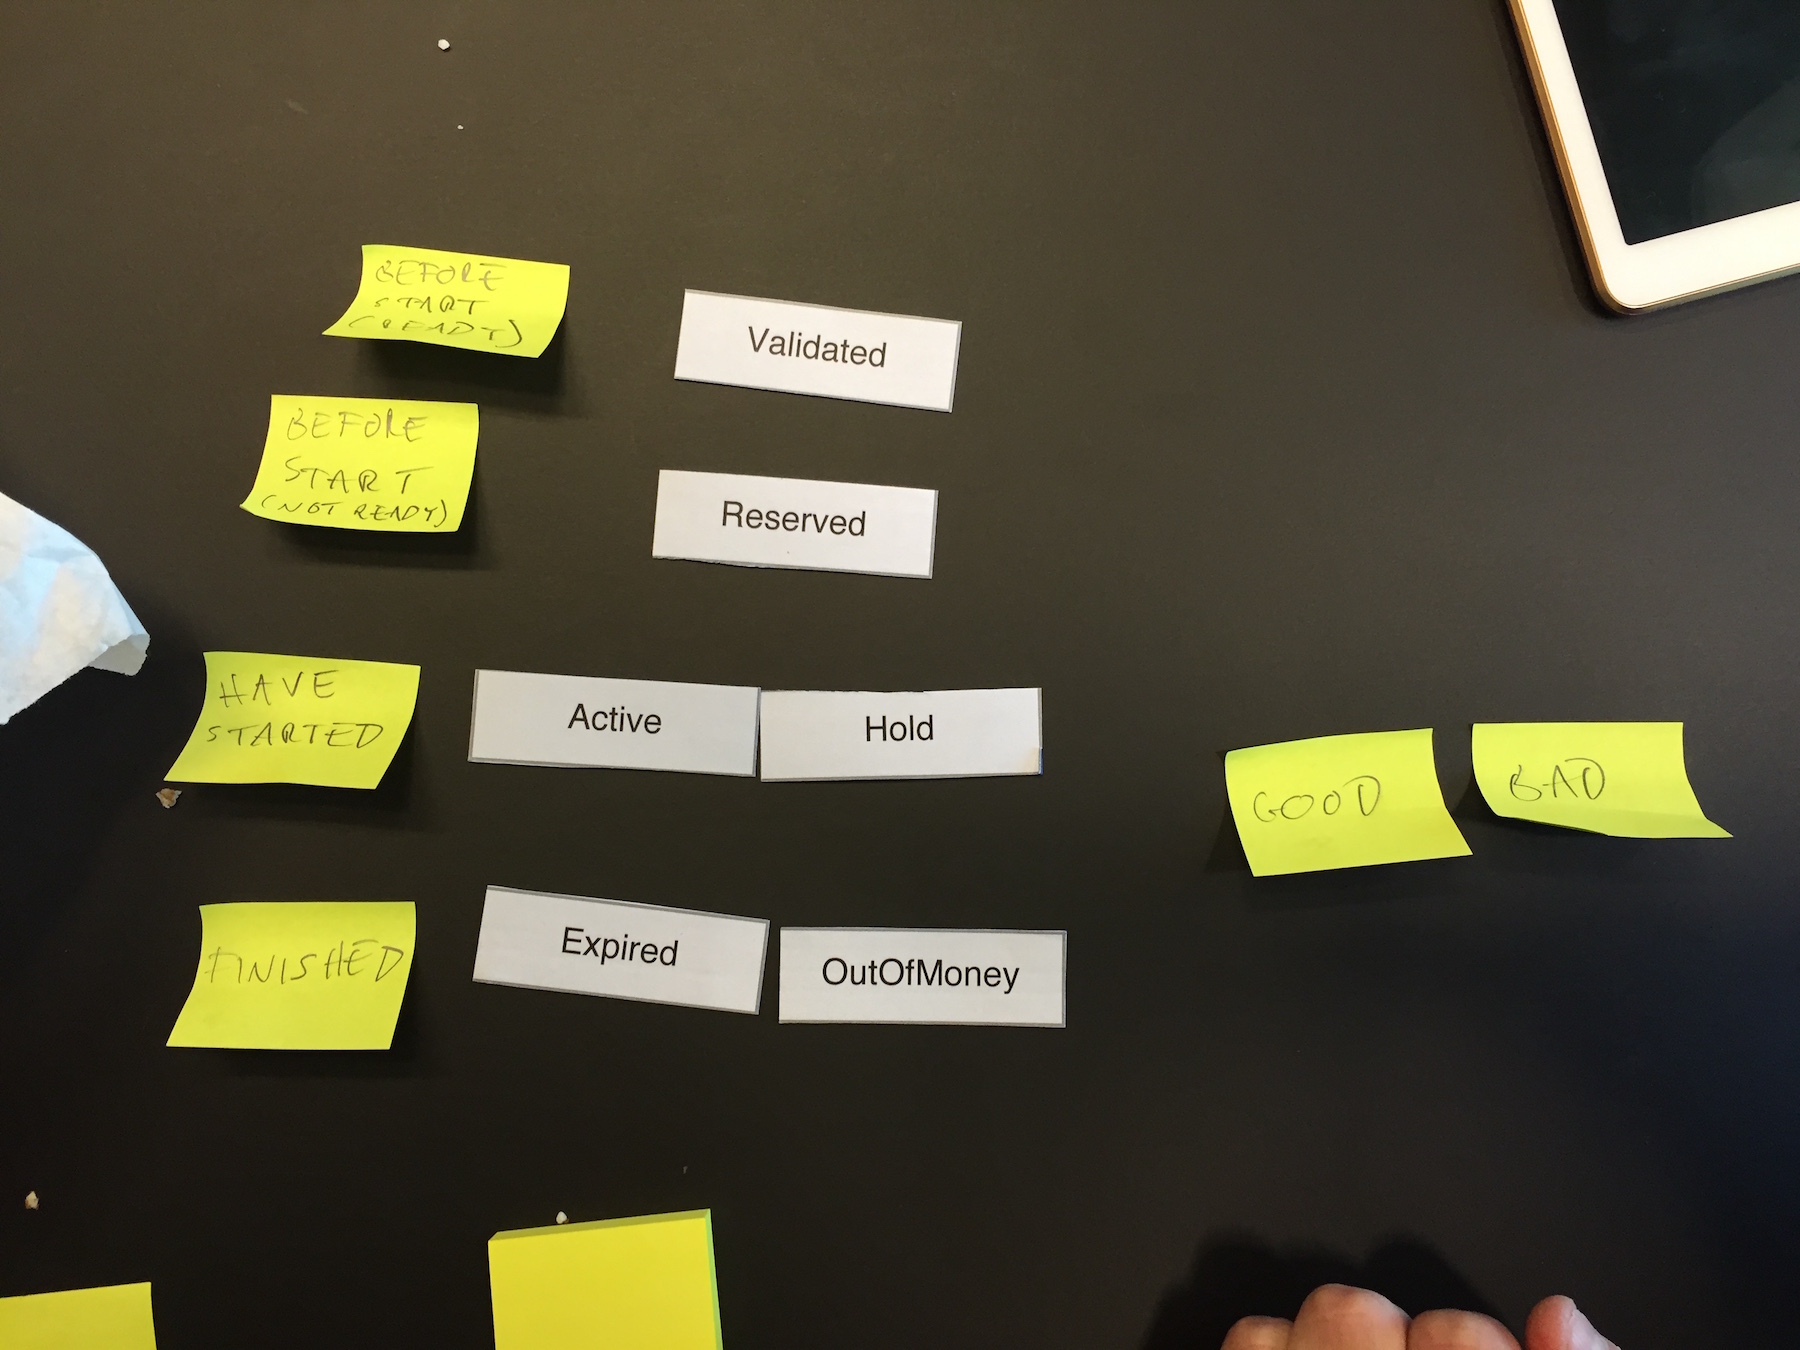 BEFORE
START
(READY)
Validated
BEFORE
START
(NOT READY)
Reserved
HAVE
STARTED
Active
Hold
GOOD
BAD
FINISHED
Expired
OutOfMoney